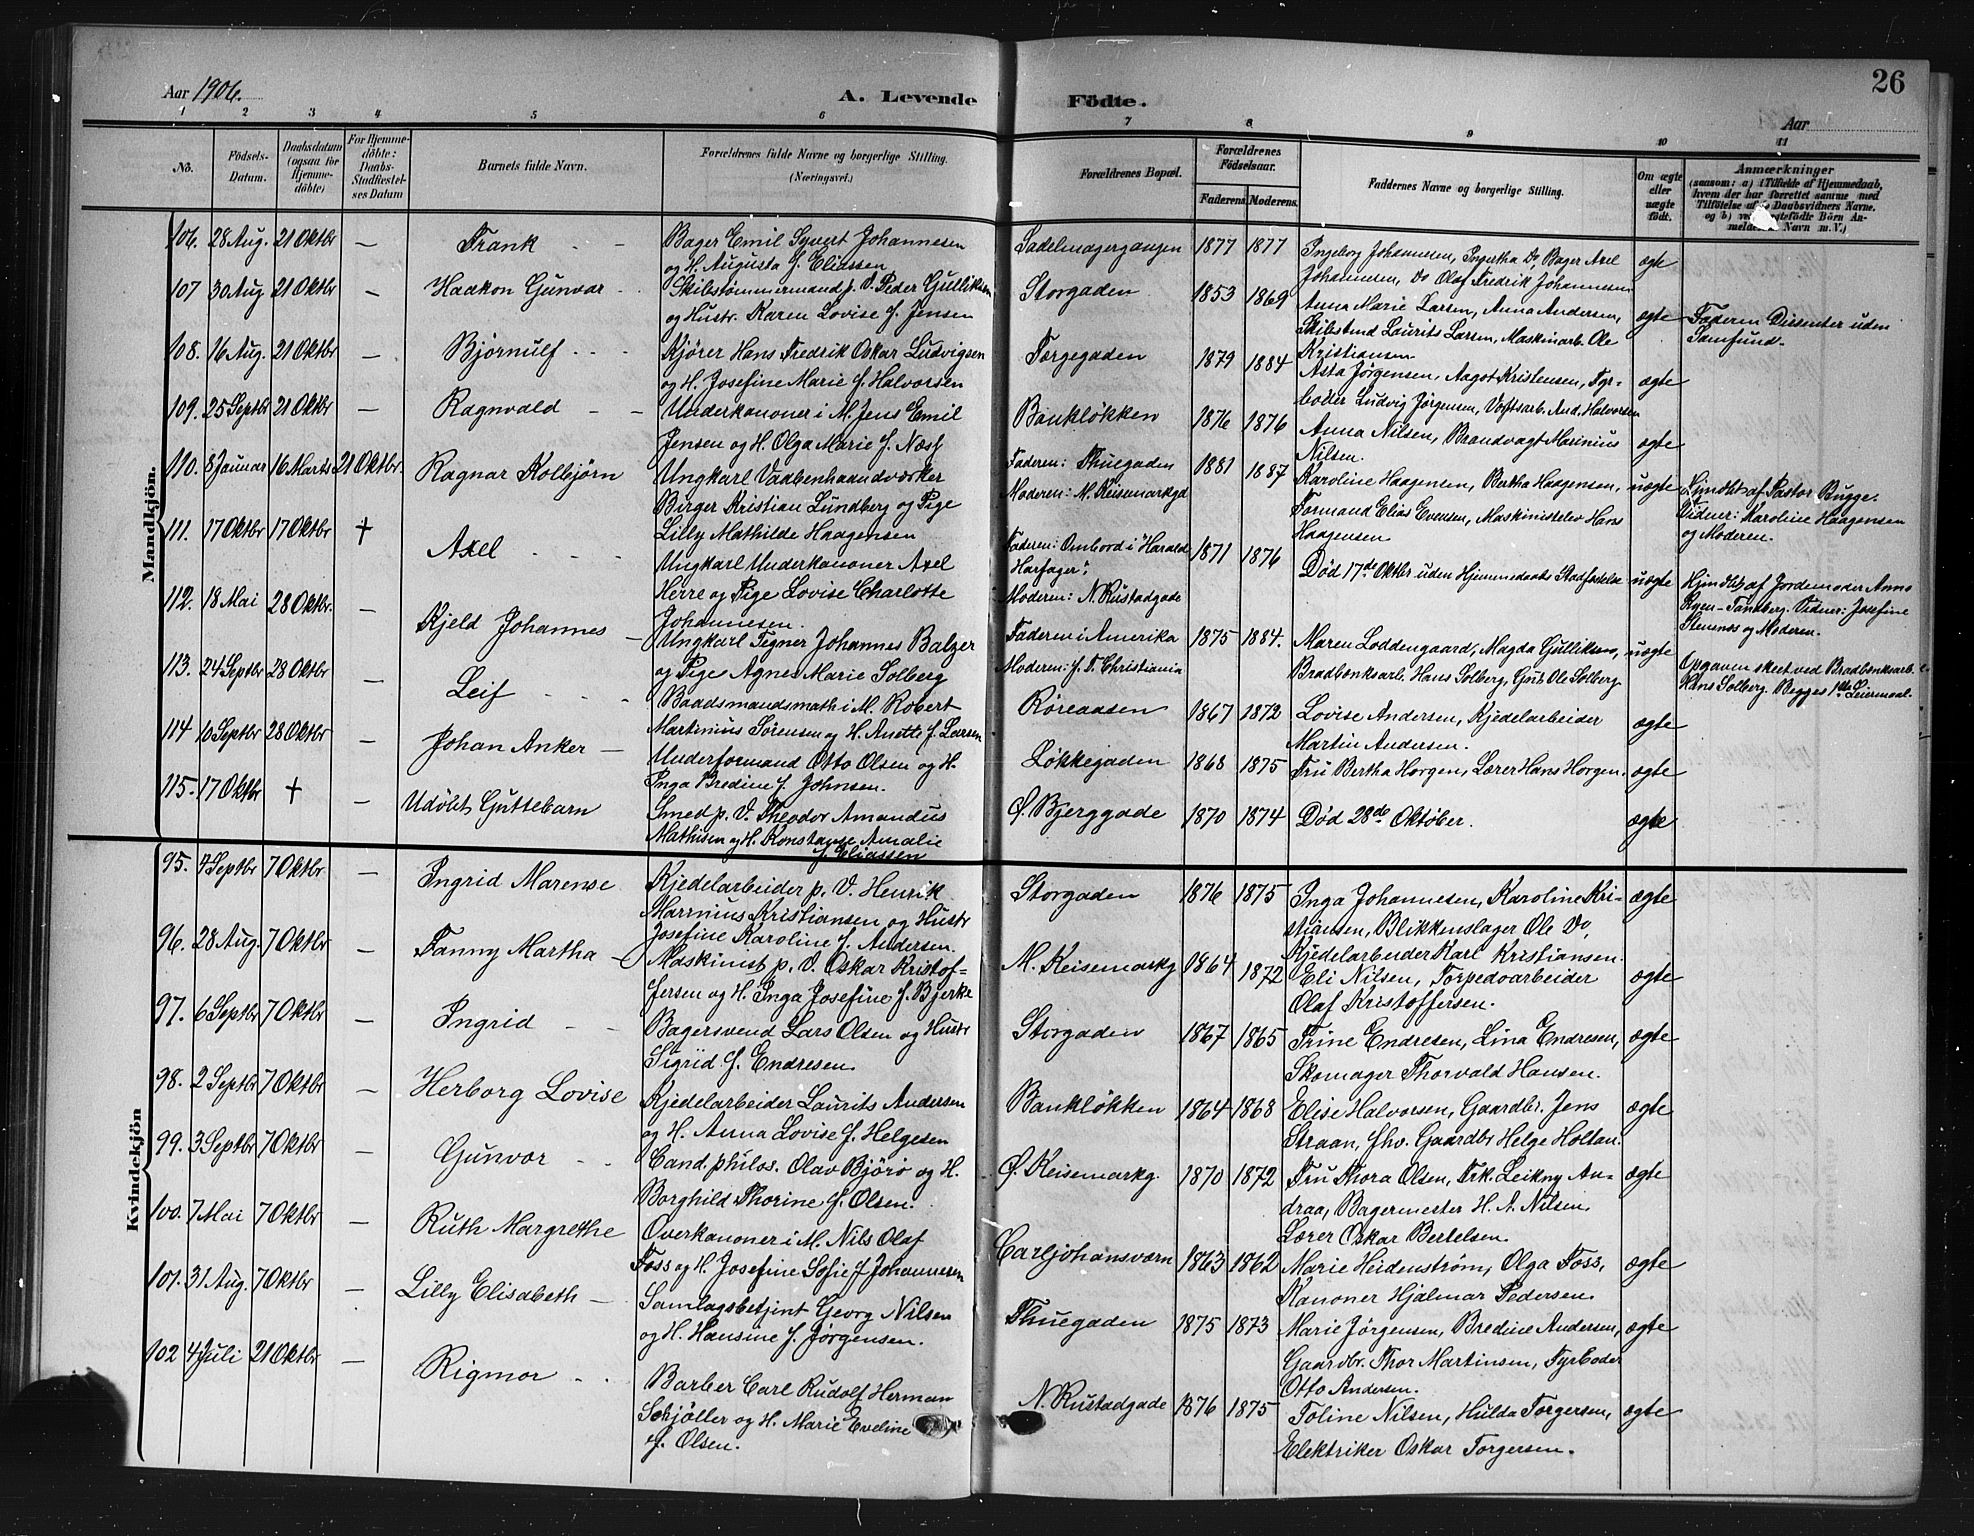 Aar 1906.
A. Levende Födte.
26
Aar
1 2 3 4 5 6 7 8 9 10 11
No.
Födsels-Datum.
Daabsdatum (ogsaa for Hjemme-döbte)
For Hjemme-döbte: Daabs-Stadfæstel-ses Datum
Barnets fulde Navn.
Forældrenes fulde Navne og borgerlige Stilling. (Næringsvei.)
Forældrenes Bopæl.
Forældrenes Födselsaar. Faderens Moderens.
Faddernes Navne og borgerlige Stilling.
Om ægte eller uægte födt.
Anmærkninger
Mandkjön.
106. 28 Aug. 21 Oktbr — Frank - - Bager Emil Syvert Johannesen
og H. Augusta f. Eliassen
Sadelmagergangen 1877 1877 Ingeborg Johannesen, Ingertha Do, Bager Axel
Johannesen, Do Olaf Fredrik Johannesen ægte
107 30 Aug 21 Oktbr — Haakon Gunvar - Skibstømmermand p. V. Peder Gulliksen
og Hustr. Karen Lovise f. Jensen
Storgaden 1853 1869 Anna Marie Larsen, Anna Andersen,
Skibstmd Laurits Larsen, Maskinarb. Ole
Kristiansen ægte Faderen Dissenter uden
Samfund.
108. 16 Aug. 21 Oktbr — Bjørnulf - - - Kjører Hans Fredrik Oskar Ludvigsen
og H. Josefine Marie f. Halvorsen
Færgegaden 1879 1884 Asta Jørgensen, Aagot Kristensen, Fyr-
bøder Ludvig Jørgensen, Værftsarb. And. Halvorsen ægte
109. 25 Septbr 21 Oktbr — Ragnvald - - Underkanoner i M. Jens Emil
Jensen og H. Olga Marie f. Næss
Bankløkken 1876 1876 Anna Nilsen, Brandvagt Masinius
Nilsen. ægte
110. 8 Januar 16 Marts 21 Oktbr. Ragnar Kolbjörn Ungkarl Vaabenhaandværker
Birger Kristian Lundberg og Pige
Lilly Mathilde Haagensen
Faderen: Thuegaden
Moderen: M. Keisemarkgd 1881 1887 Karoline Haagensen, Bertha Haagensen,
Formand Elias Evensen, Maskinistelev Hans
Haagensen uægte af Pastor Bugge.
Vidner: Karoline Haagensen
og Moderen.
111. 17 Oktbr 17 Oktbr † Axel - - - Ungkarl Underkanoner Axel
Herre og Pige Lovise Charlotte
Johannesen.
Faderen: Ombord i "Harald
Harfager".
Moderen: N. Rustadgade 1871 1876 Død 17de Oktbr uden Hjemmedaabs Stadfæstelse uægte Hjmdbt af Jordemoder Anna
Ryen-Tandberg. Vidner: Josefine
Stemnes og Moderen.
112. 18 Mai 28 Oktbr — Kjeld Johannes — Ungkarl Tegner Johannes Balzer
og Pige Agnes Marie Solberg
Faderen i Amerika
Moderen: f. T. Christiania 1875 1884. Maren Loddengaard, Magda Gulliksen,
Bradbænksarb. Hans Solberg, Gut Ole Solberg. uægte Opgaven skeet ved Bradbænksarb.
Hans Solberg. Begges 1ste Leiermaal.
113. 24 Septbr 28 Oktbr — Leif - - - Baadsmandsmath i M. Robert
Martinius Sørensen og H. Anette f. Larsen
Røreaasen 1867 1872 Lovise Andersen, Kjedelarbeider
Martin Andersen. ægte
114 10 Septbr 28 Oktbr — Johan Anker — Underformand Otto Olsen og H.
Inga Bredine f. Johnsen.
Løkkegaden 1868 1875 Fru Bertha Horgen, Lærer Hans Horgen. ægte
115. 17 Oktbr † — Udöbt Guttebarn Smed p. V. Theodor Amandus
Mathisen og H. Konstanse Amalie
f. Eliassen
Ø. Bjerggade 1870 1874 Död 28de Oktöber. ægte
Kvindekjön
95. 4 Septbr 7 Oktbr — Ingrid Marense Kjedelarbeider p. V. Henrik
Marinius Kristiansen og Hustr
Josefine Karoline f. Andersen.
Storgaden 1876 1875 Inga Johannesen, Karoline Kri-
stiansen, Blikkenslager Ole Do,
Kjedelarbeider Karl Kristiansen. ægte
96. 28 Aug. 7 Oktbr — Fanny Martha — Maskinist p. V. Oskar Kristof-
fersen og H. Inga Josefine f. Bjerke
M. Keisemarkg 1864 1872 Eli Nilsen, Torpedoarbeider
Olaf Kristoffersen. ægte
97. 6 Septbr 7 Oktbr — Ingrid - - Bagersvend Lars Olsen og Hustr
Sigrid f. Endresen.
Storgaden 1867 1865 Trine Endresen, Lina Endresen,
Skomager Thorvald Hansen. ægte
98. 2 Septbr 7 Oktbr — Herborg Lovise Kjedelarbeider Laurits Andersen
og H. Anna Lovise f. Helgesen
Bankløkken 1864 1868 Elise Halvorsen, Gaardbr. Jens
Straan, fhv. Gaardbr Helge Holtan. ægte
99. 3 Septbr 7 Oktbr — Gunvor - - Cand. philos. Olav Bjørø og H.
Borghild Thorine f. Olsen.
Ø. Keisemarkg. 1870 1872 Fru Thora Olsen, Frk. Leikny An-
draa, Bagermester H. A. Nilsen,
Lærer Oskar Bertelsen. ægte
100. 7 Mai 7 Oktbr — Ruth Margrethe Overkanoner i M. Nils Olaf
Foss og H. Josefine Sofie f. Johannesen
Carljohansværn 1863 1862 Marie Heidenstrøm, Olga Foss,
Kanoner Hjalmar Pedersen. ægte
101. 31 Aug. 7 Oktbr — Lilly Elisabeth — Samlagsbetjent Georg Nilsen
og H. Hansine f. Jørgensen.
Thuegaden 1875 1873 Marie Jörgensen, Bredine Andersen,
Gaardbr. Thor Martinsen, Fyrbøder
Otto Andersen. ægte
102 4 Juli 21 Oktbr — Rigmor - - Barber Carl Rudolf Herman
Schjöller og H. Marie Eveline
f. Olsen.
N. Rustadgade 1876 1875 Toline Nilsen, Hulda Torgersen,
Elektriker Oskar Torgersen. ægte